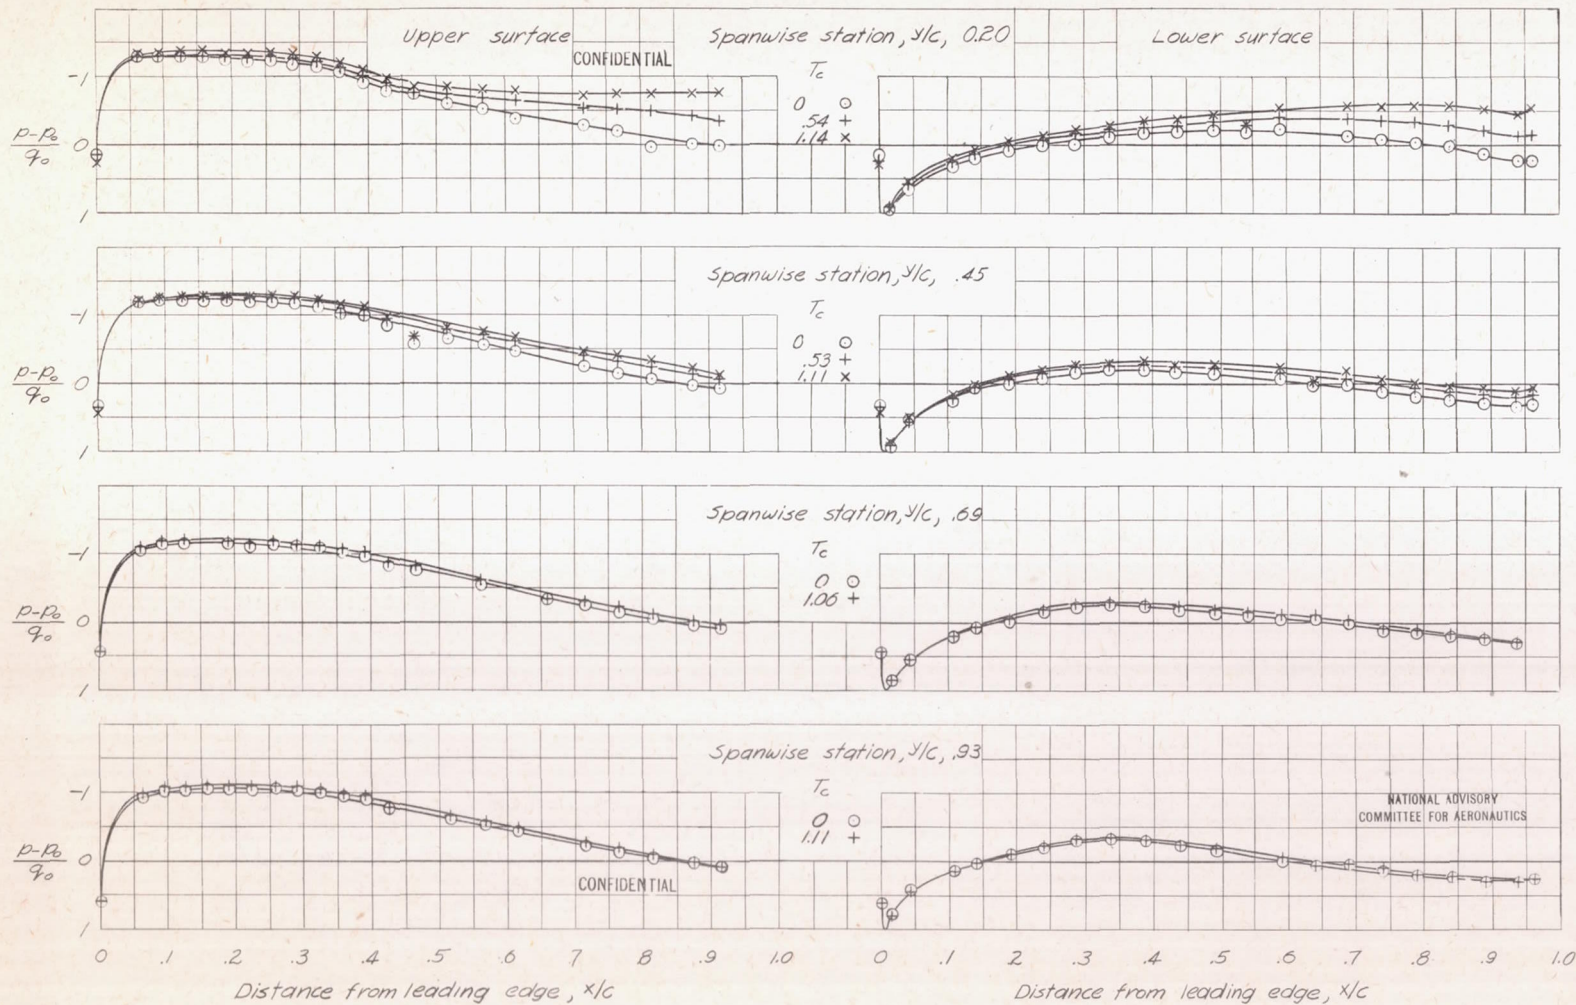 Upper surface
CONFIDENTIAL
Spanwise station, y/c, 0.20
Lower surface
Tc
0 ⊙
.54 +
1.14 ×
-1
p-p₀
q₀
0
1
Spanwise station, y/c, .45
Tc
0 ⊙
.53 +
1.11 ×
-1
p-p₀
q₀
0
1
Spanwise station, y/c, .69
Tc
0 ⊙
1.06 +
-1
p-p₀
q₀
0
1
Spanwise station, y/c, .93
Tc
0 ⊙
1.11 +
-1
p-p₀
q₀
0
1
NATIONAL ADVISORY
COMMITTEE FOR AERONAUTICS
CONFIDENTIAL
0 .1 .2 .3 .4 .5 .6 .7 .8 .9 1.0
0 .1 .2 .3 .4 .5 .6 .7 .8 .9 1.0
Distance from leading edge, x/c
Distance from leading edge, x/c